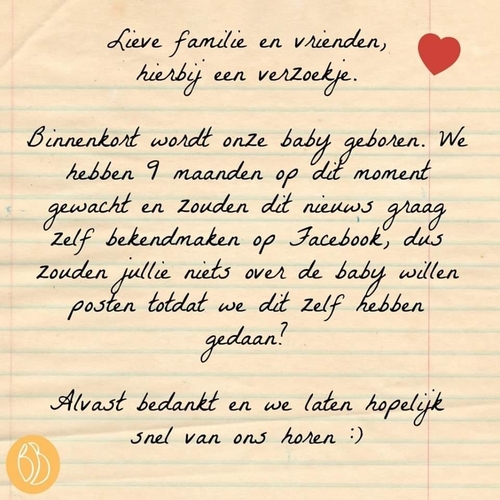 Lieve familie en vrienden,
hierbij een verzoekje.
Binnenkort wordt onze baby geboren. We
hebben 9 maanden op dit moment
gewacht en zouden dit nieuws graag
zelf bekendmaken op Facebook, dus
zouden jullie niets over de baby willen
posten totdat we dit zelf hebben
gedaan?
Alvast bedankt en we laten hopelijk
snel van ons horen :)
BB